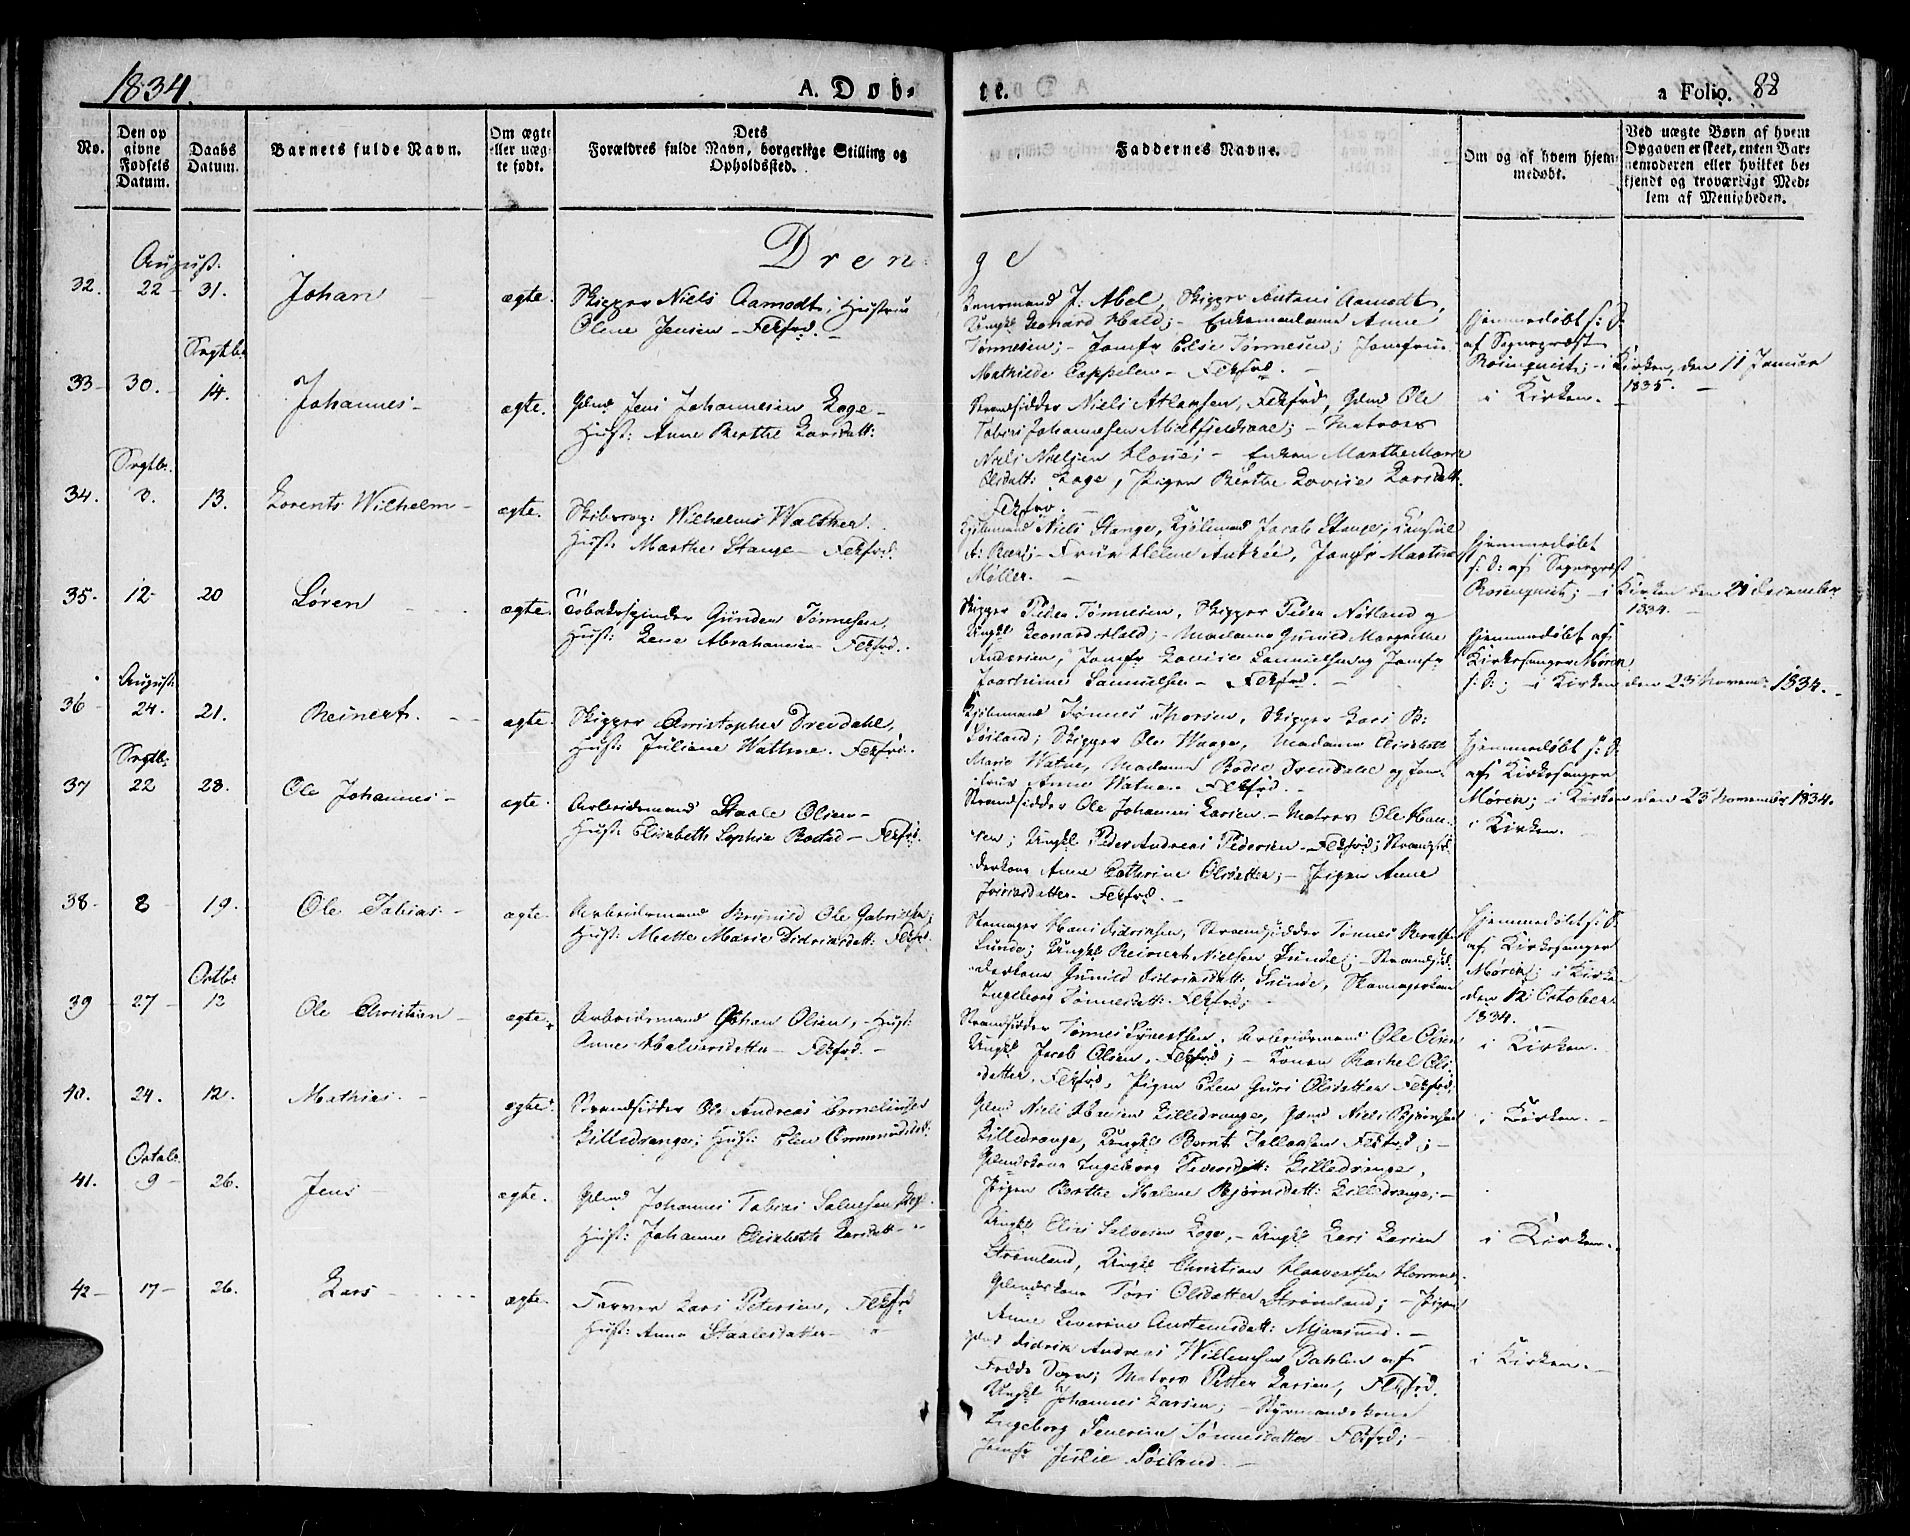 1834.
A. Døb-
te.
a Folio. 88
No.
Den op
givne
Fødsels
Datum.
Daabs
Datum.
Barnets fulde Navn.
Om ægte
eller uæg-
te født.
Dets
Forældres fulde Navn, borgerlige Stilling og
Opholdssted.
Faddernes Navne.
Om og af hvem hjem-
medøbt.
Ved uægte Børn af hvem
Opgaven er skeet, enten Bar-
nemoderen eller hvilket be-
kjendt og troværdigt Med-
lem af Menigheden.
Dren-
ge
August.
32. 22 - 31. Johan - ægte. Skipper Niels Aamodt, Hustrue
Olene Jensen - Flekfrd. -
J. Abel, Skipper Antoni Aamodt,
Ungkl Leonard Hald; - Anne
Tønnesen; - Jomfr Elsie Tønnesen; Jomfrue
Mathilde Cappelen - Flekfrd. -
hjemmedøbt f: D:
af Sognepræst
Rosenqvist; - i Kirken, den 11 Januar
1835. -
Septbr
33 - 30. 14. Johannes - ægte. Jens Johannesen Loge -
Hust: Anne Berthe Larsdatt:
Strandsidder Niels Atlaksen, Flekfrd, Ole
Tobias Johannesen - Matros
Niels Nielsen - Enken Marthe Marie
Olsdatt: Loge, Pigen Berthe Lovise Larsdatt.
Flekfrd. -
i Kirken. -
Septbr.
34. 3. 13. Lorents Wilhelm - ægte. Wilhelms Walther.
Hust: Marthe Stange - Flekfrd.
Kjøbmand Niels Stange, Kjøbmand Jacob Stange, Konsul
Frue Helene Jomfr Martine
Møller. -
hjemmedøbt
f: D: af Sognepræst
Rosenqvist; - i Kirken den 21 December
1834. -
35. 12 - 20 Søren - ægte. Tobaksspinder Gunder Tønnesen,
Hust: Lene Abrahamsen - Flekfrd.
Skipper Peder Tønnesen, Skipper Peder Nøtland og
Ungkl Leonard Hald; - Madame Gunild Margrethe
Andersen, Jomfr Lovise Samuelsen og Jomfr
Samuelsen - Flekfrd. -
hjemmedøbt af
Kirkesanger Møren
f: D:; - i Kirken den 23 Novemb: 1834. -
August:
36 - 24. 21. Reinert. - ægte. Skipper Christopher Drevdahl,
Hust: Juliane Wathne. Flekfrd.
Kjøbmand Tønnes Thorsen, Skipper Lars B:
Søiland; Skipper Ole Waage, Madame Elisabeth
Marie Watne, Madame Bodil Drevdahl og Jom-
frue Anne Watne. Flekfrd. -
hjemmedøbt f: D:
af Kirkesanger
Møren; i Kirken den 23 November 1834.
Septb:
37 22 28. Ole Johannes - ægte. Arbeidsmand Staale Olsen -
Hust: Elisabeth Sophie Bostad - Flekfrd.
Strandsidder Ole Johannes Larsen. - Matros Ole Han-
sen; Ungkl Peder Andreas Pedersen - Flekfrd; Strandsid-
derkone Anne Cathrine Olsdatter; - Pigen Anne
Flekfrd. -
i Kirken. -
38. 8 - 19. Ole Tobias. - ægte. Arbeidsmand Ole Gabrielsen,
Hust: Mette Marie Didriksdatt: Flekfrd.
Skomager Hans Didriksen, Strandsidder Tønnes Berntsen
Sunde; Ungkl Reinert Nielsen Sunde; - Strandsid-
derkone Gunild Didriksdatt: Sunde, Skomagerkone
Ingeborg Tønnesdatt: Flekfrd; -
hjemmedøbt f: D:
af Kirkesanger
Møren; i Kirken
den 12 October
1834.
Octbr:
39 - 27 - 12 Ole Christian - ægte. Arbeidsmand Johan Olsen, - Hust:
Anne Halvorsdatter - Flekfrd. -
Strandsidder Tønnes Syvertsen, Arbeidsmand Ole Olsen
Ungkl Jacob Olsen, Flekfrd; - Konen Rachel Ols-
datter, Flekfrd, Pigen Elen Guri Olsdatter Flekfrd.
i Kirken. -
40. 24. 12. Mathias. - ægte. Strandsidder Ole Andreas Cornelius
Lilledrange; Hust: Elen
Niels Hansen Lilledrange, Niels Bjørnsen
Lilledrange, Ungkl Bernt Tallaksen Flekfrd; -
Ingeborg Pedersdatt: Lilledrange,
Pigen Berthe Malene Bjørnsdatt: Lilledrange; -
i Kirken. -
Octob:
41. 9 - 26. Jens - ægte. Johannes Tobias Salvesen Loge
Hust: Johanne Elisabeth Larsdatt -
Ungkl Elias Salvesen Loge, - Ungkl Lars Larsen
Strømland, Ungkl Christian
Tøri Olsdatter Strømland; - Pigen
Anne Severine Austensdatt: Mjaasund. -
i Kirken. -
42 - 17 - 26. Lars - ægte. Farver Lars Petersen, Flekfrd
Hust: Anne Staalesdatter -
Didrik Andreas Willumsen Dahlen af
Sogn; Matros Petter Larsen, Flekfrd.
Ungkl Johannes Larsen; - Styrmandskone
Ingeborg Severine Tønnesdatter Flekfrd; -
Jomfr Julie Søiland. -
i Kirken. -